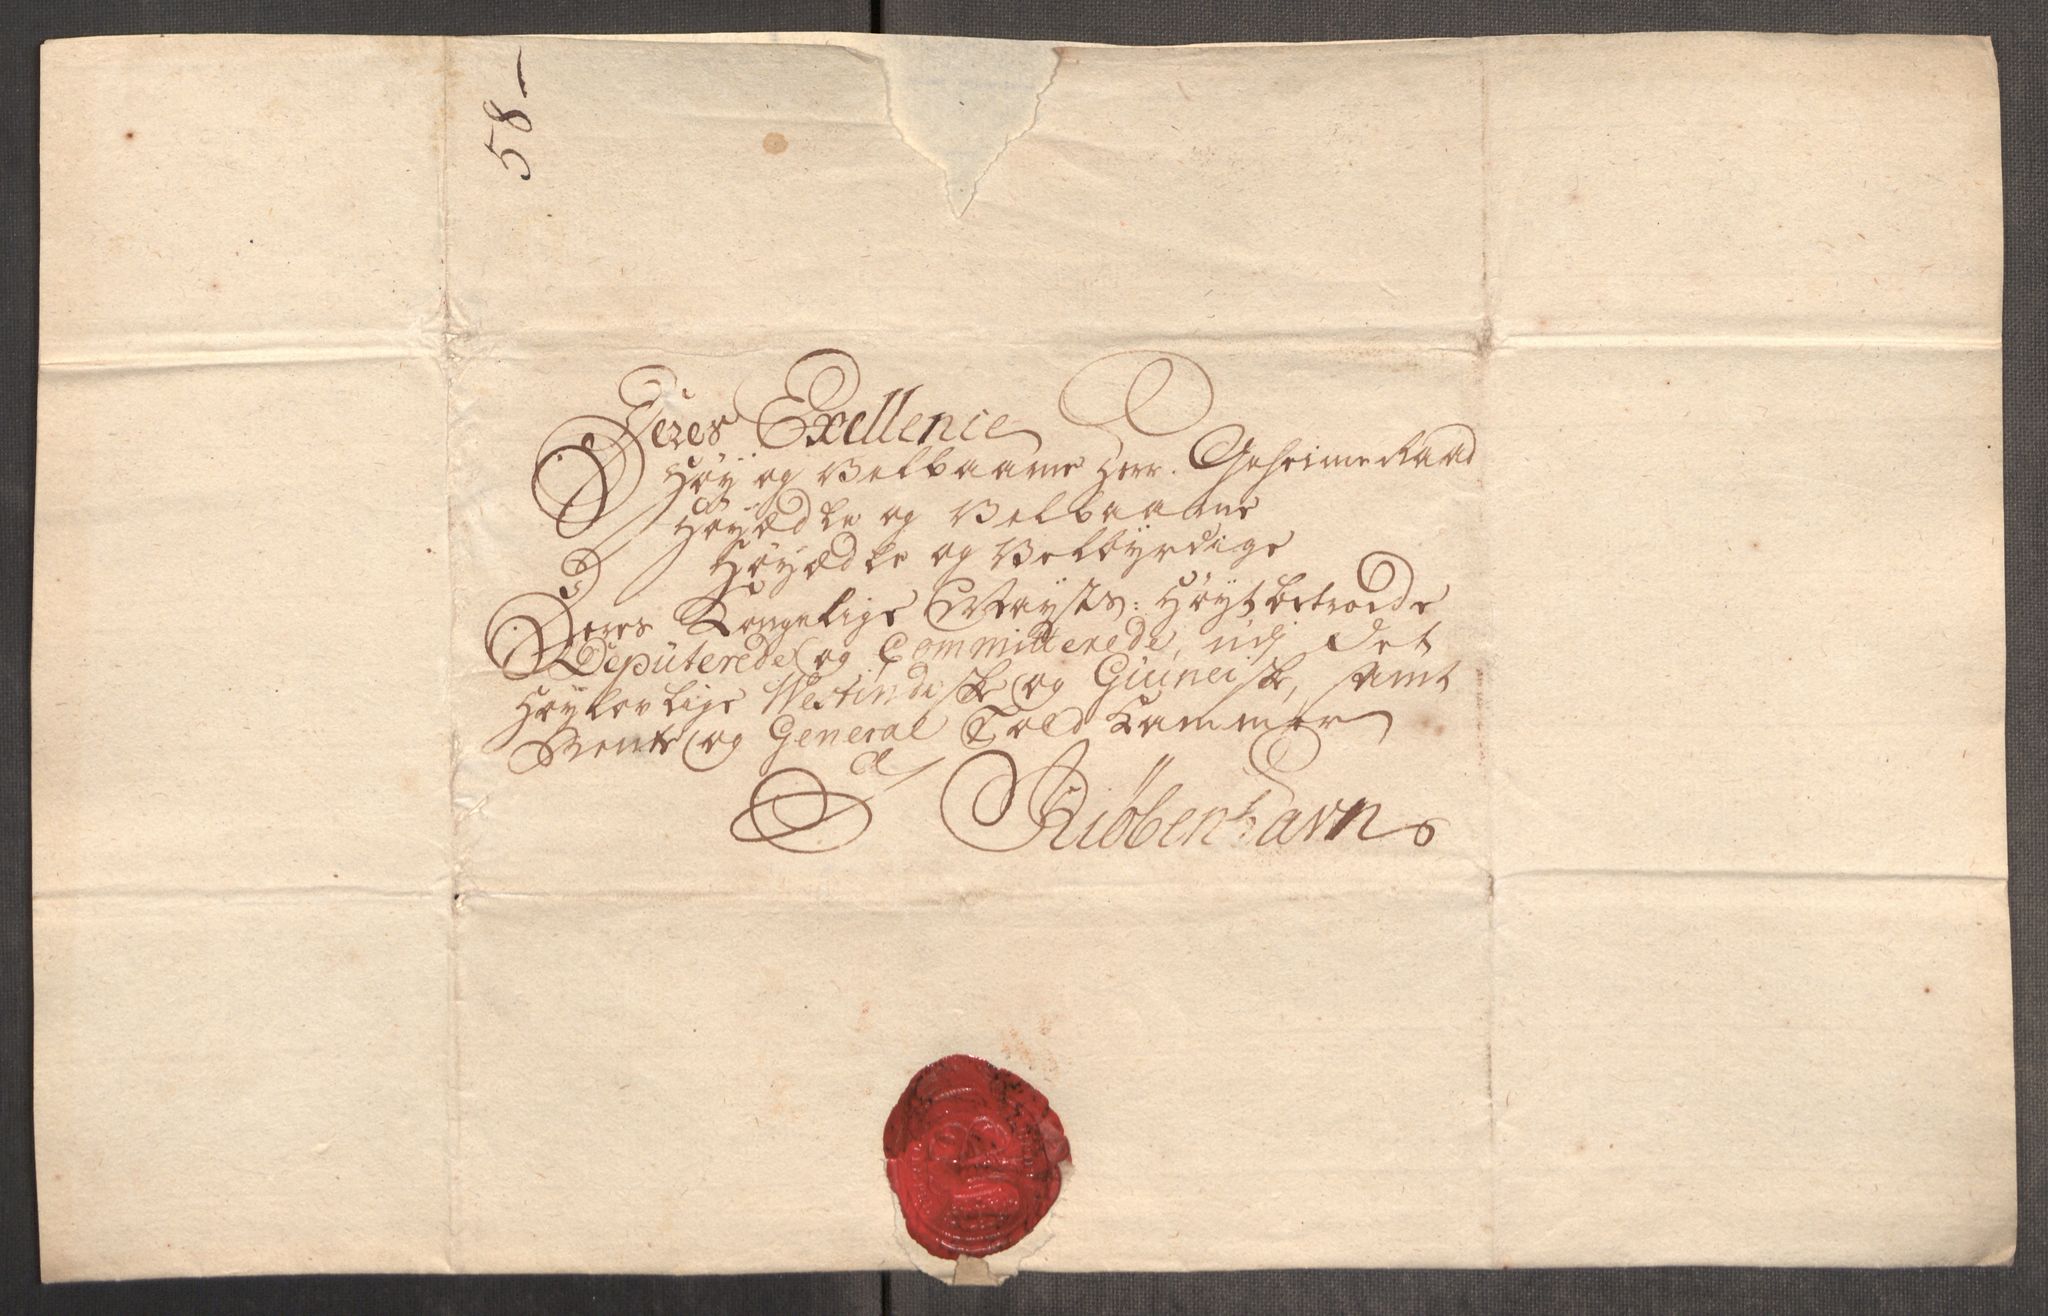 58
Deres Exellence
Høy og Velbaarne Herr. Geheime Raad
Høyædle og Velbaarne
Høyædle og Velbyrdige
Deres Kongelige Mayts: Høyt betroede
Deputerede og Committerede, udj det
Høylovlige Westindiske og Guineiske, samt
Rente og General Told Kammer
Kiöbenhavn